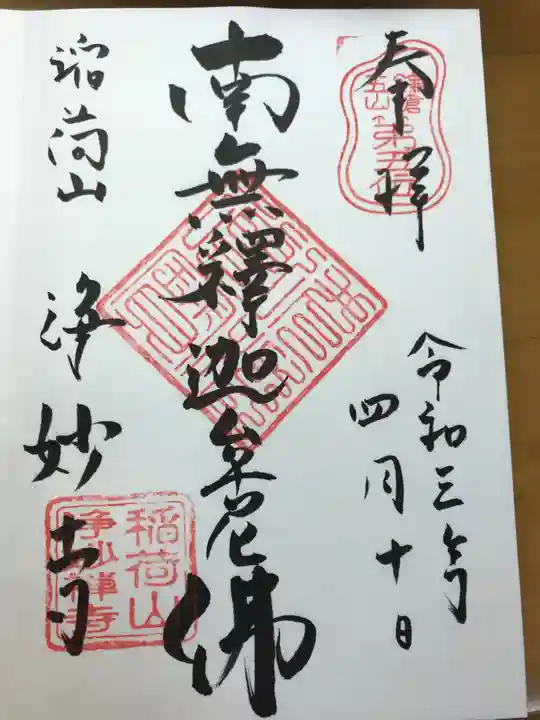 奉拝
鎌倉
五山
第五位
令和三年
四月十日
南無釋迦牟尼佛
稲荷山 浄妙寺
稲荷山
浄妙禅寺